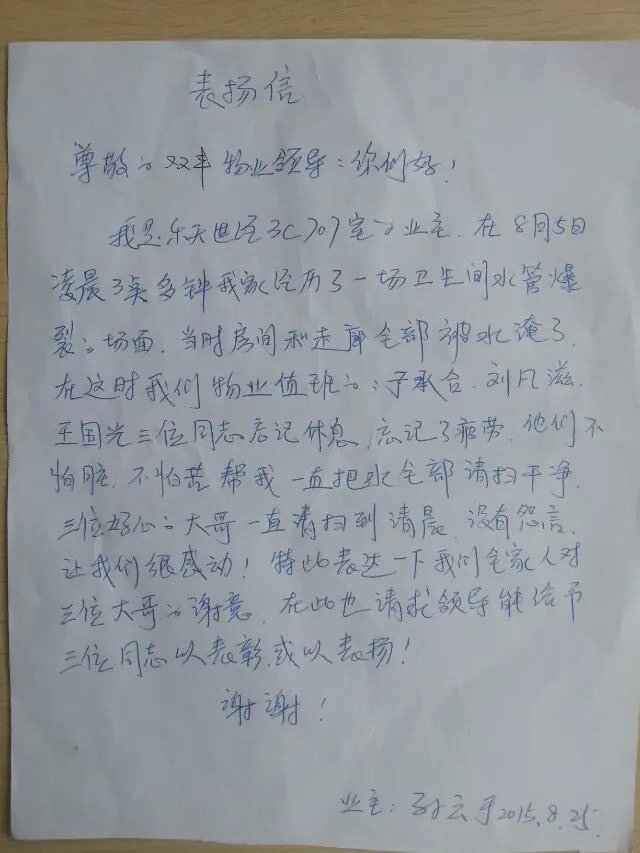 表扬信
尊敬的双丰物业领导：你们好！
我是乐天世纪3C707室的业主，在8月5日
凌晨3点多钟我家经历了一场卫生间水管爆
裂的场面，当时房间和走廊全部被水淹了，
在这时我们物业值班的：于承合、刘凡滋、
王国光三位同志忘记休息，忘记了疲劳，他们不
怕脏，不怕苦帮我一直把水全部清扫干净，
三位好心的大哥一直清扫到清晨，没有怨言，
让我们很感动！特此表达一下我们全家人对
三位大哥的谢意，在此也请求领导能给予
三位同志以表彰，或以表扬！
谢谢！
业主：孙云于2015.8.25.